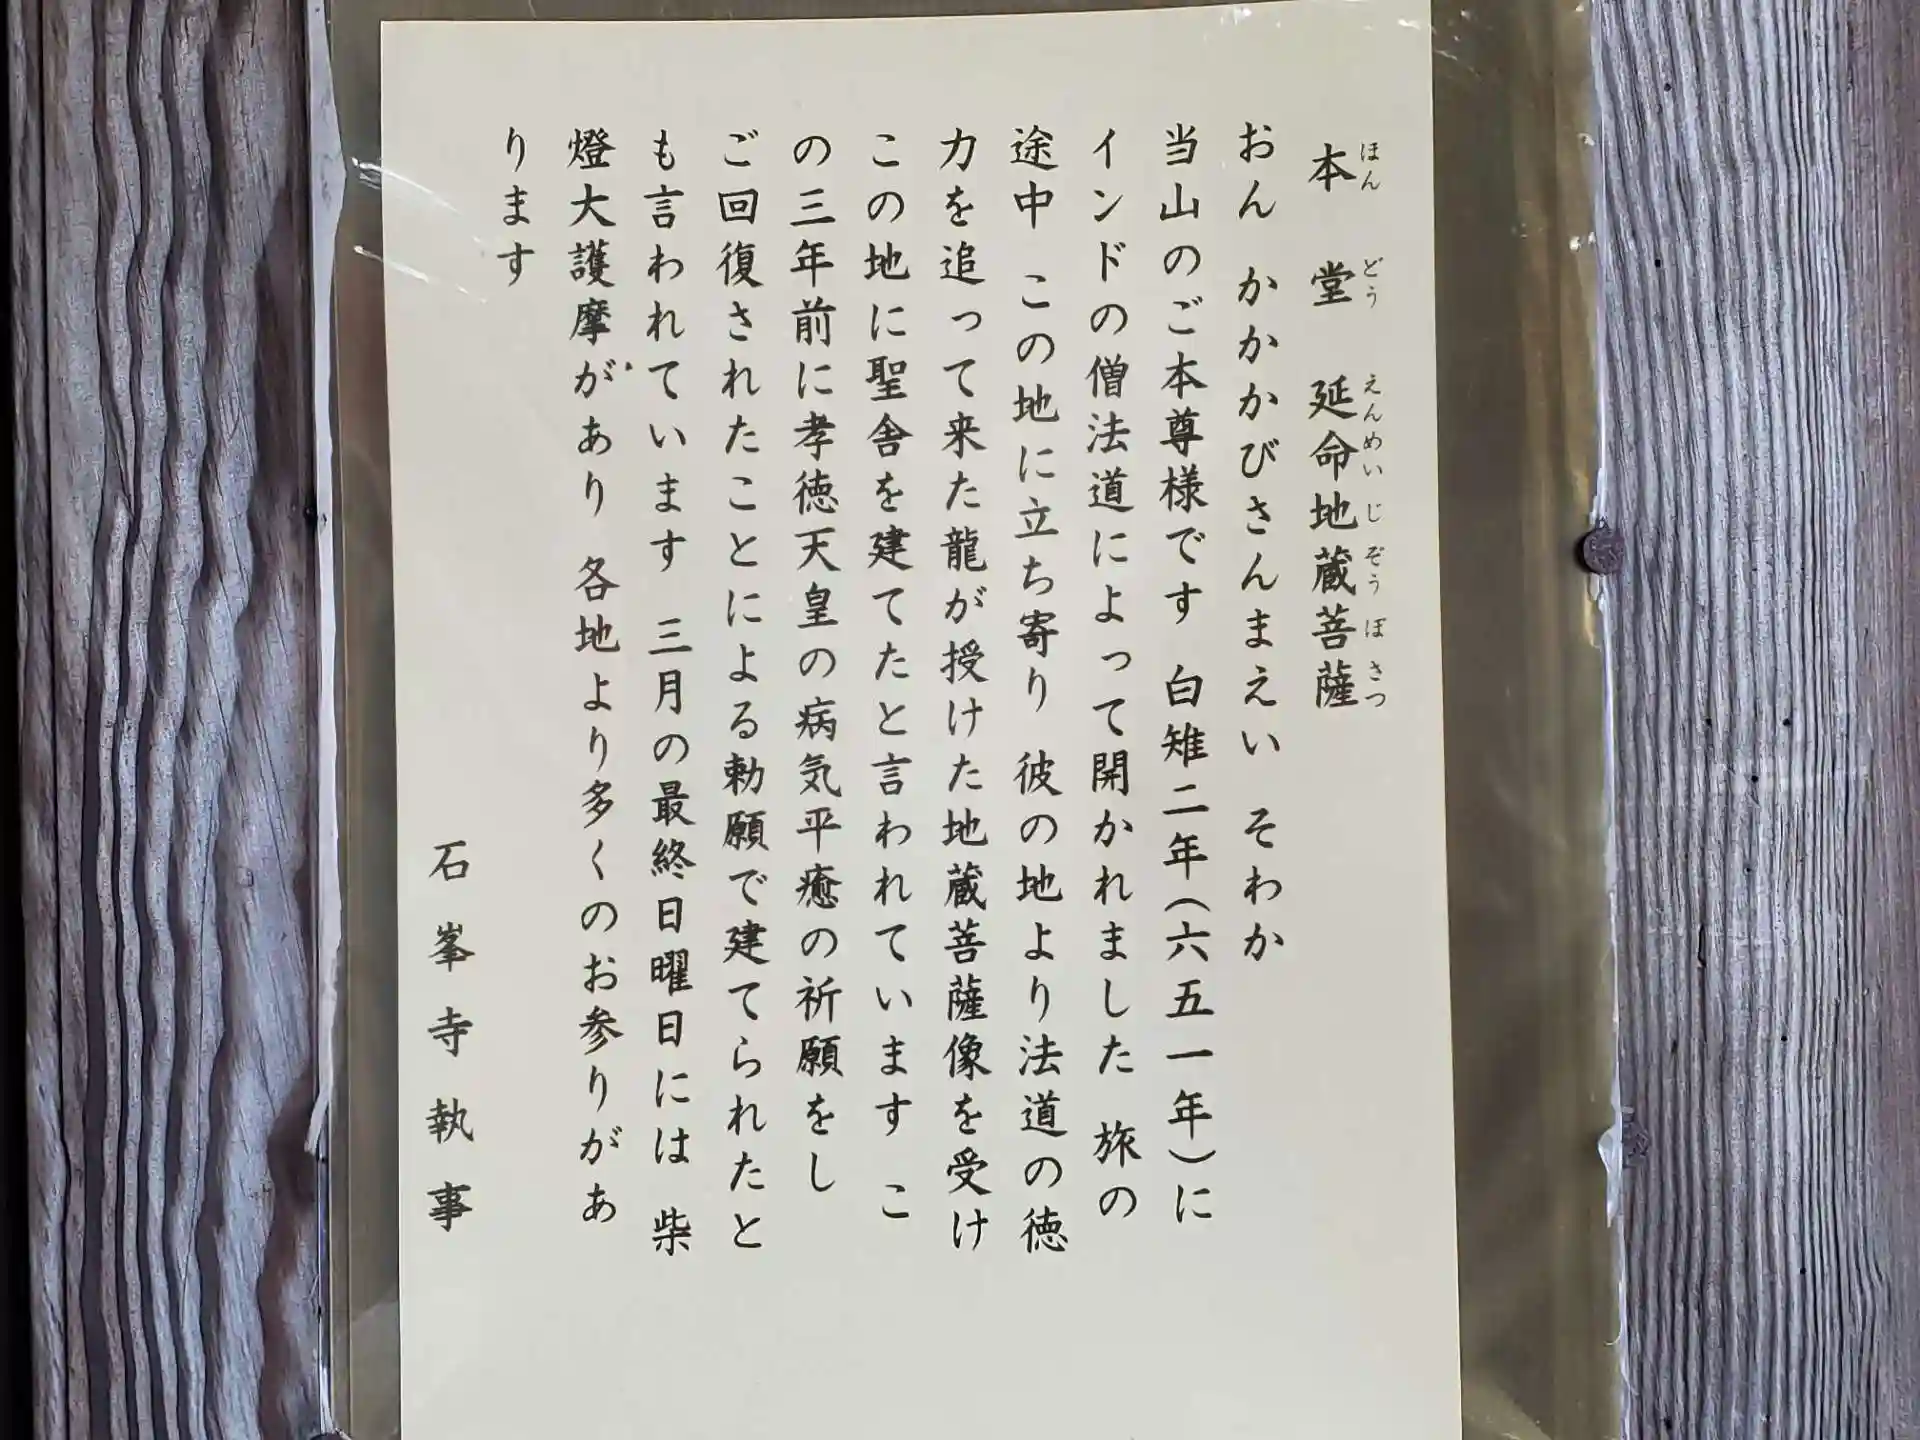 本堂 延命地蔵菩薩
おん かかかびさんまえい そわか
当山のご本尊様です 白雉二年(六五一年)に
インドの僧法道によって開かれました 旅の
途中 この地に立ち寄り 彼の地より法道の徳
力を追って来た龍が授けた地蔵菩薩像を受け
この地に聖舎を建てたと言われています こ
の三年前に孝徳天皇の病気平癒の祈願をし
ご回復されたことによる勅願で建てられたと
も言われています 三月の最終日曜日には 柴
燈大護摩があり 各地より多くのお参りがあ
ります
石峯寺執事